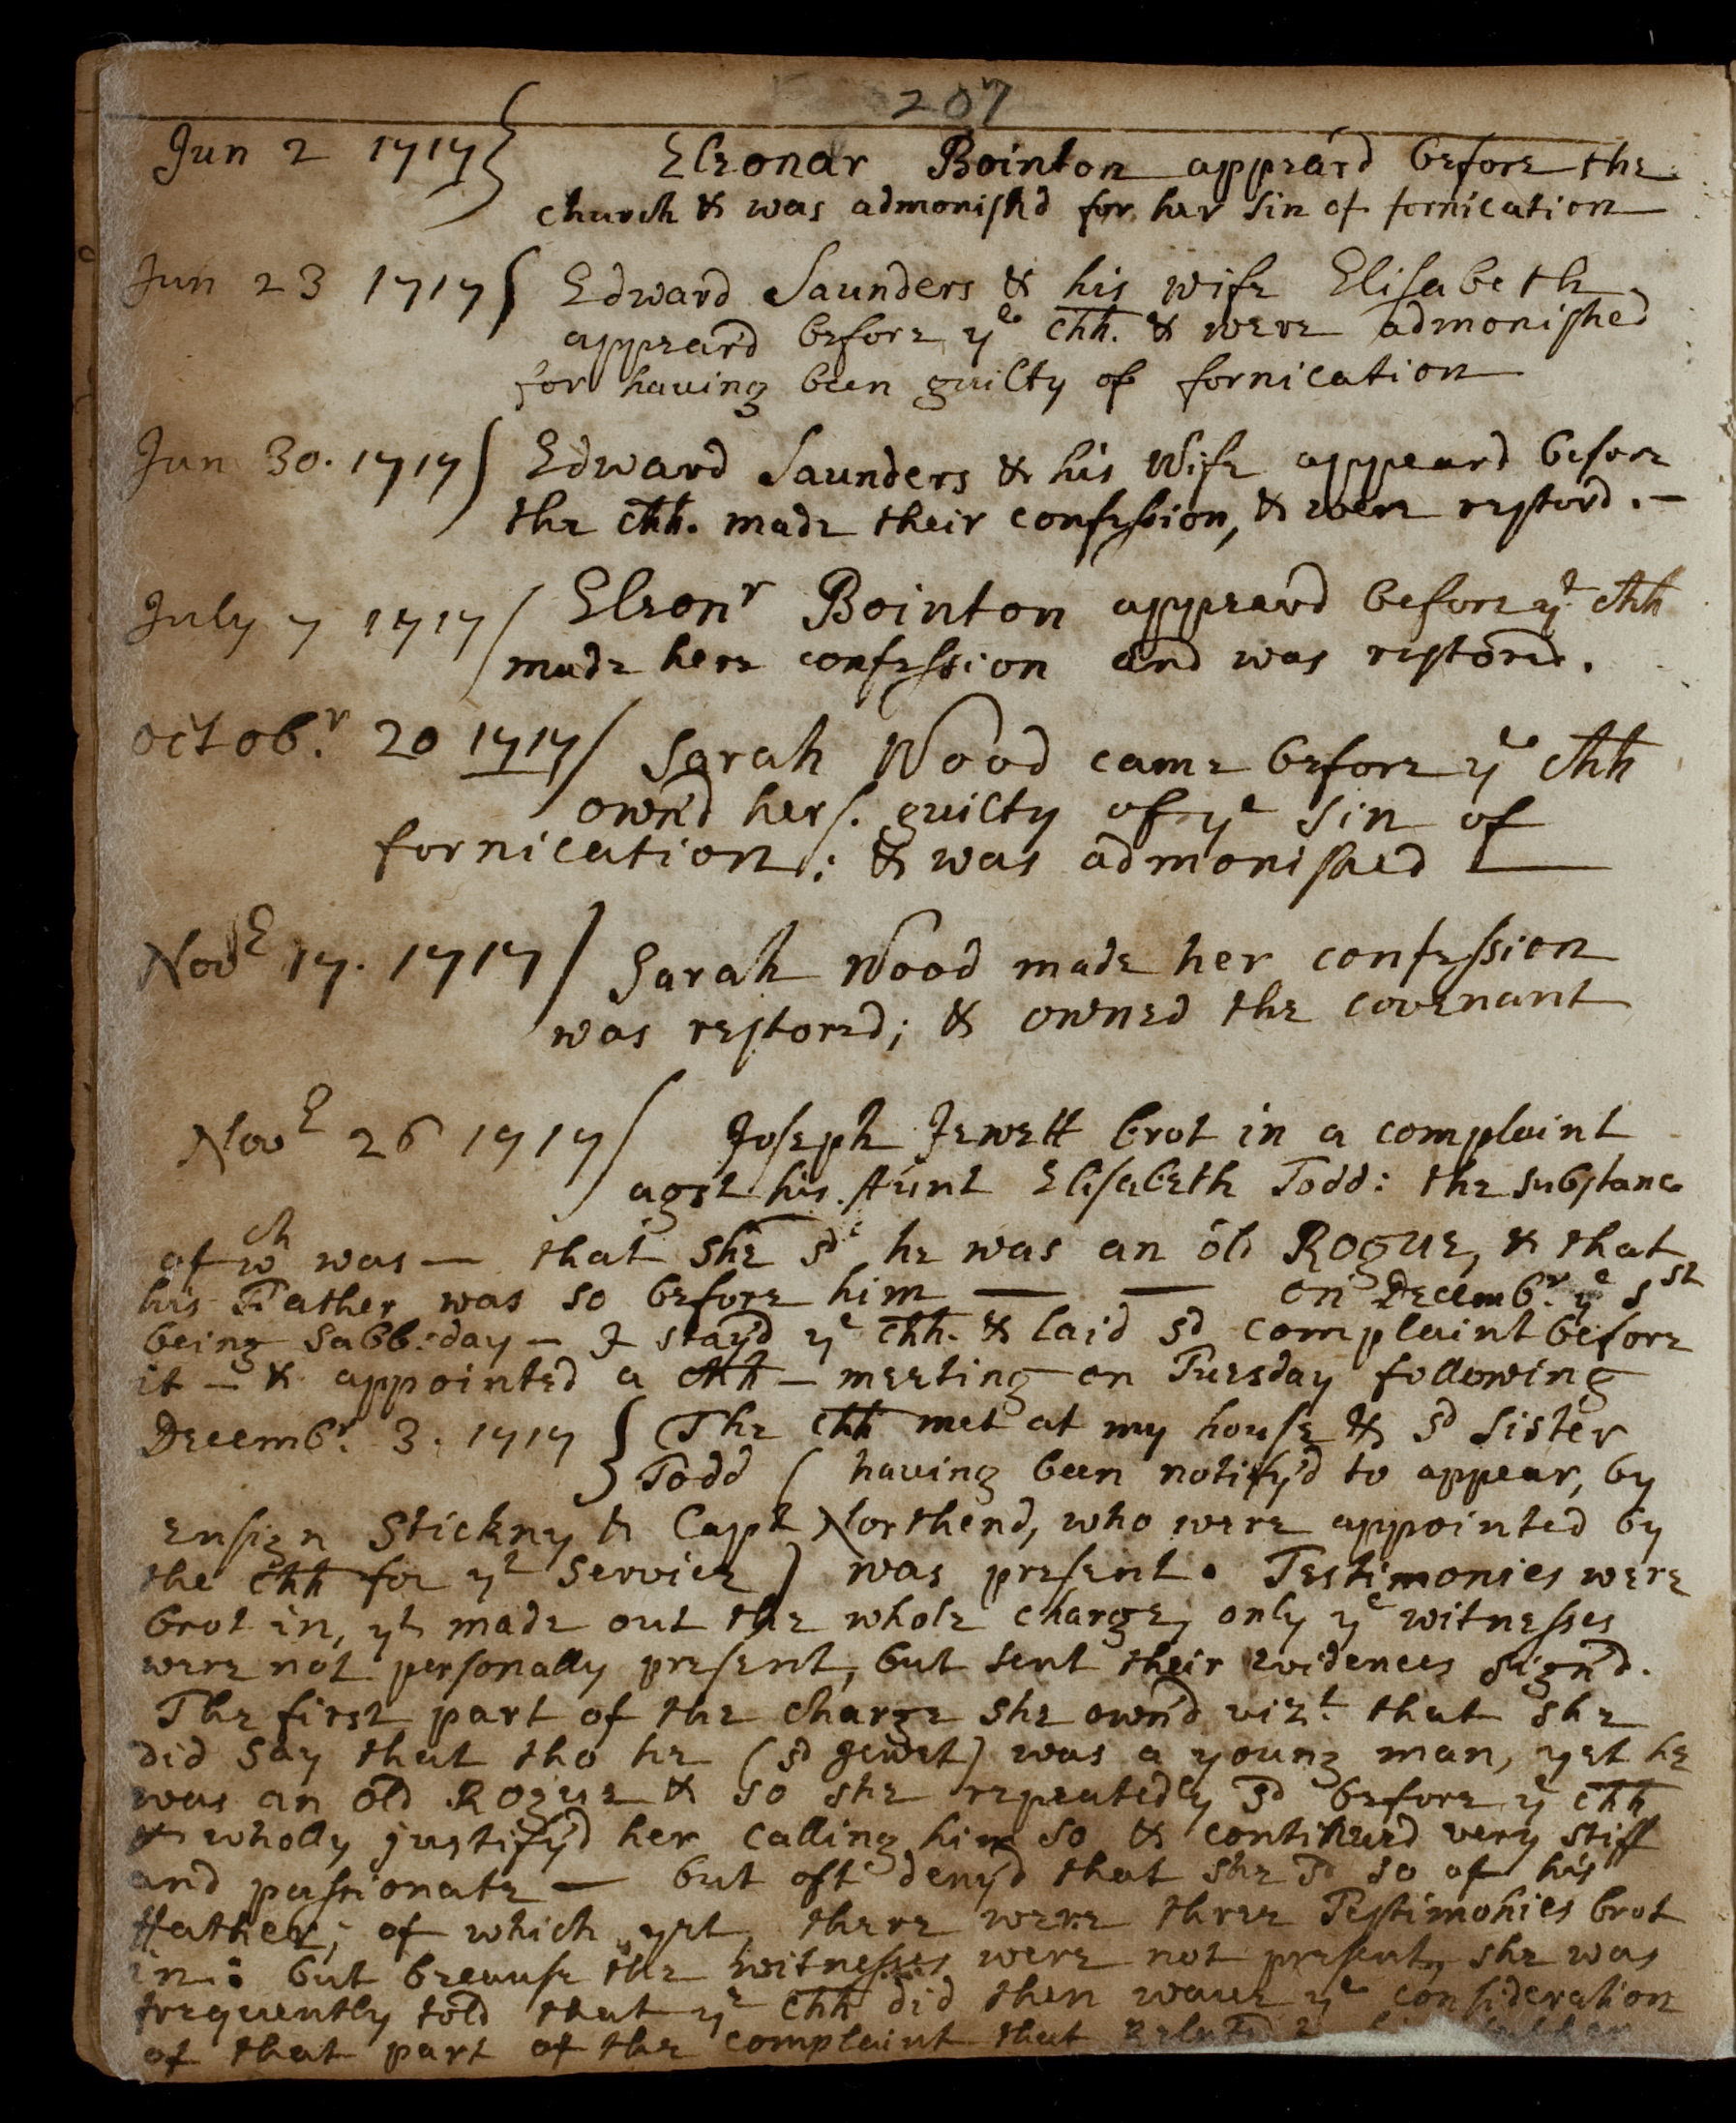 207
Jun 2 1717 } Eleonar Bointon appear'd before the
church & was admonish'd for her sin of fornication
Jun 23 1717 { Edward Saunders & his wife Elisabeth
appear'd before ye chh. & were admonished
for having been guilty of fornication
Jun 30. 1717 ) Edward Saunders & his Wife appeard before
the chh. made their confession, & were restord. —
July 7 1717 / Eleonr Bointon appeard before ye chh
made here confession and was restored.
Octobr. 20 1717 / Sarah Wood came before ye chh
own'd hers. guilty of ye sin of
fornication: & was admonished
Nove 17. 1717 / Sarah Wood made her confession
was restored; & owned the covenant
Nove 26 1717 / Joseph Jewett brot in a complaint
agst his Aunt Elisabeth Todd: the substanc
of wch was — that she sd he was an old Rogue, & that
his Father was so before him — — on Decembr. ye 1st
being Sabb: day — I stay'd ye chh. & laid sd complaint before
it — & appointed a chh — meeting on Tuesday following
Decembr. 3. 1717 } The chh met at my house & sd Sister
Todd ( having been notify'd to appear, by
Ensign Stickny & Capt Northend, who were appointed by
the chh for yt service ) was present. Testimonies were
brot in, yt made out the whole charge, only ye witnesses
were not personally present, but sent their evidences sign'd.
The first part of the charge she own'd vizt. that she
did say that tho he (sd Jewet) was a young man, yet he
was an old Rogue & so she repeatedly sd before ye chh
& wholly justify'd her calling him so & continued very stiff
and passionate — but oft deny'd that she sd so of his
ffather; of which yet there were three Testimonies brot
in: but because the witnesses were not present, she was
frequently told that ye chh did then wave ye consideration
of that part of the complaint that